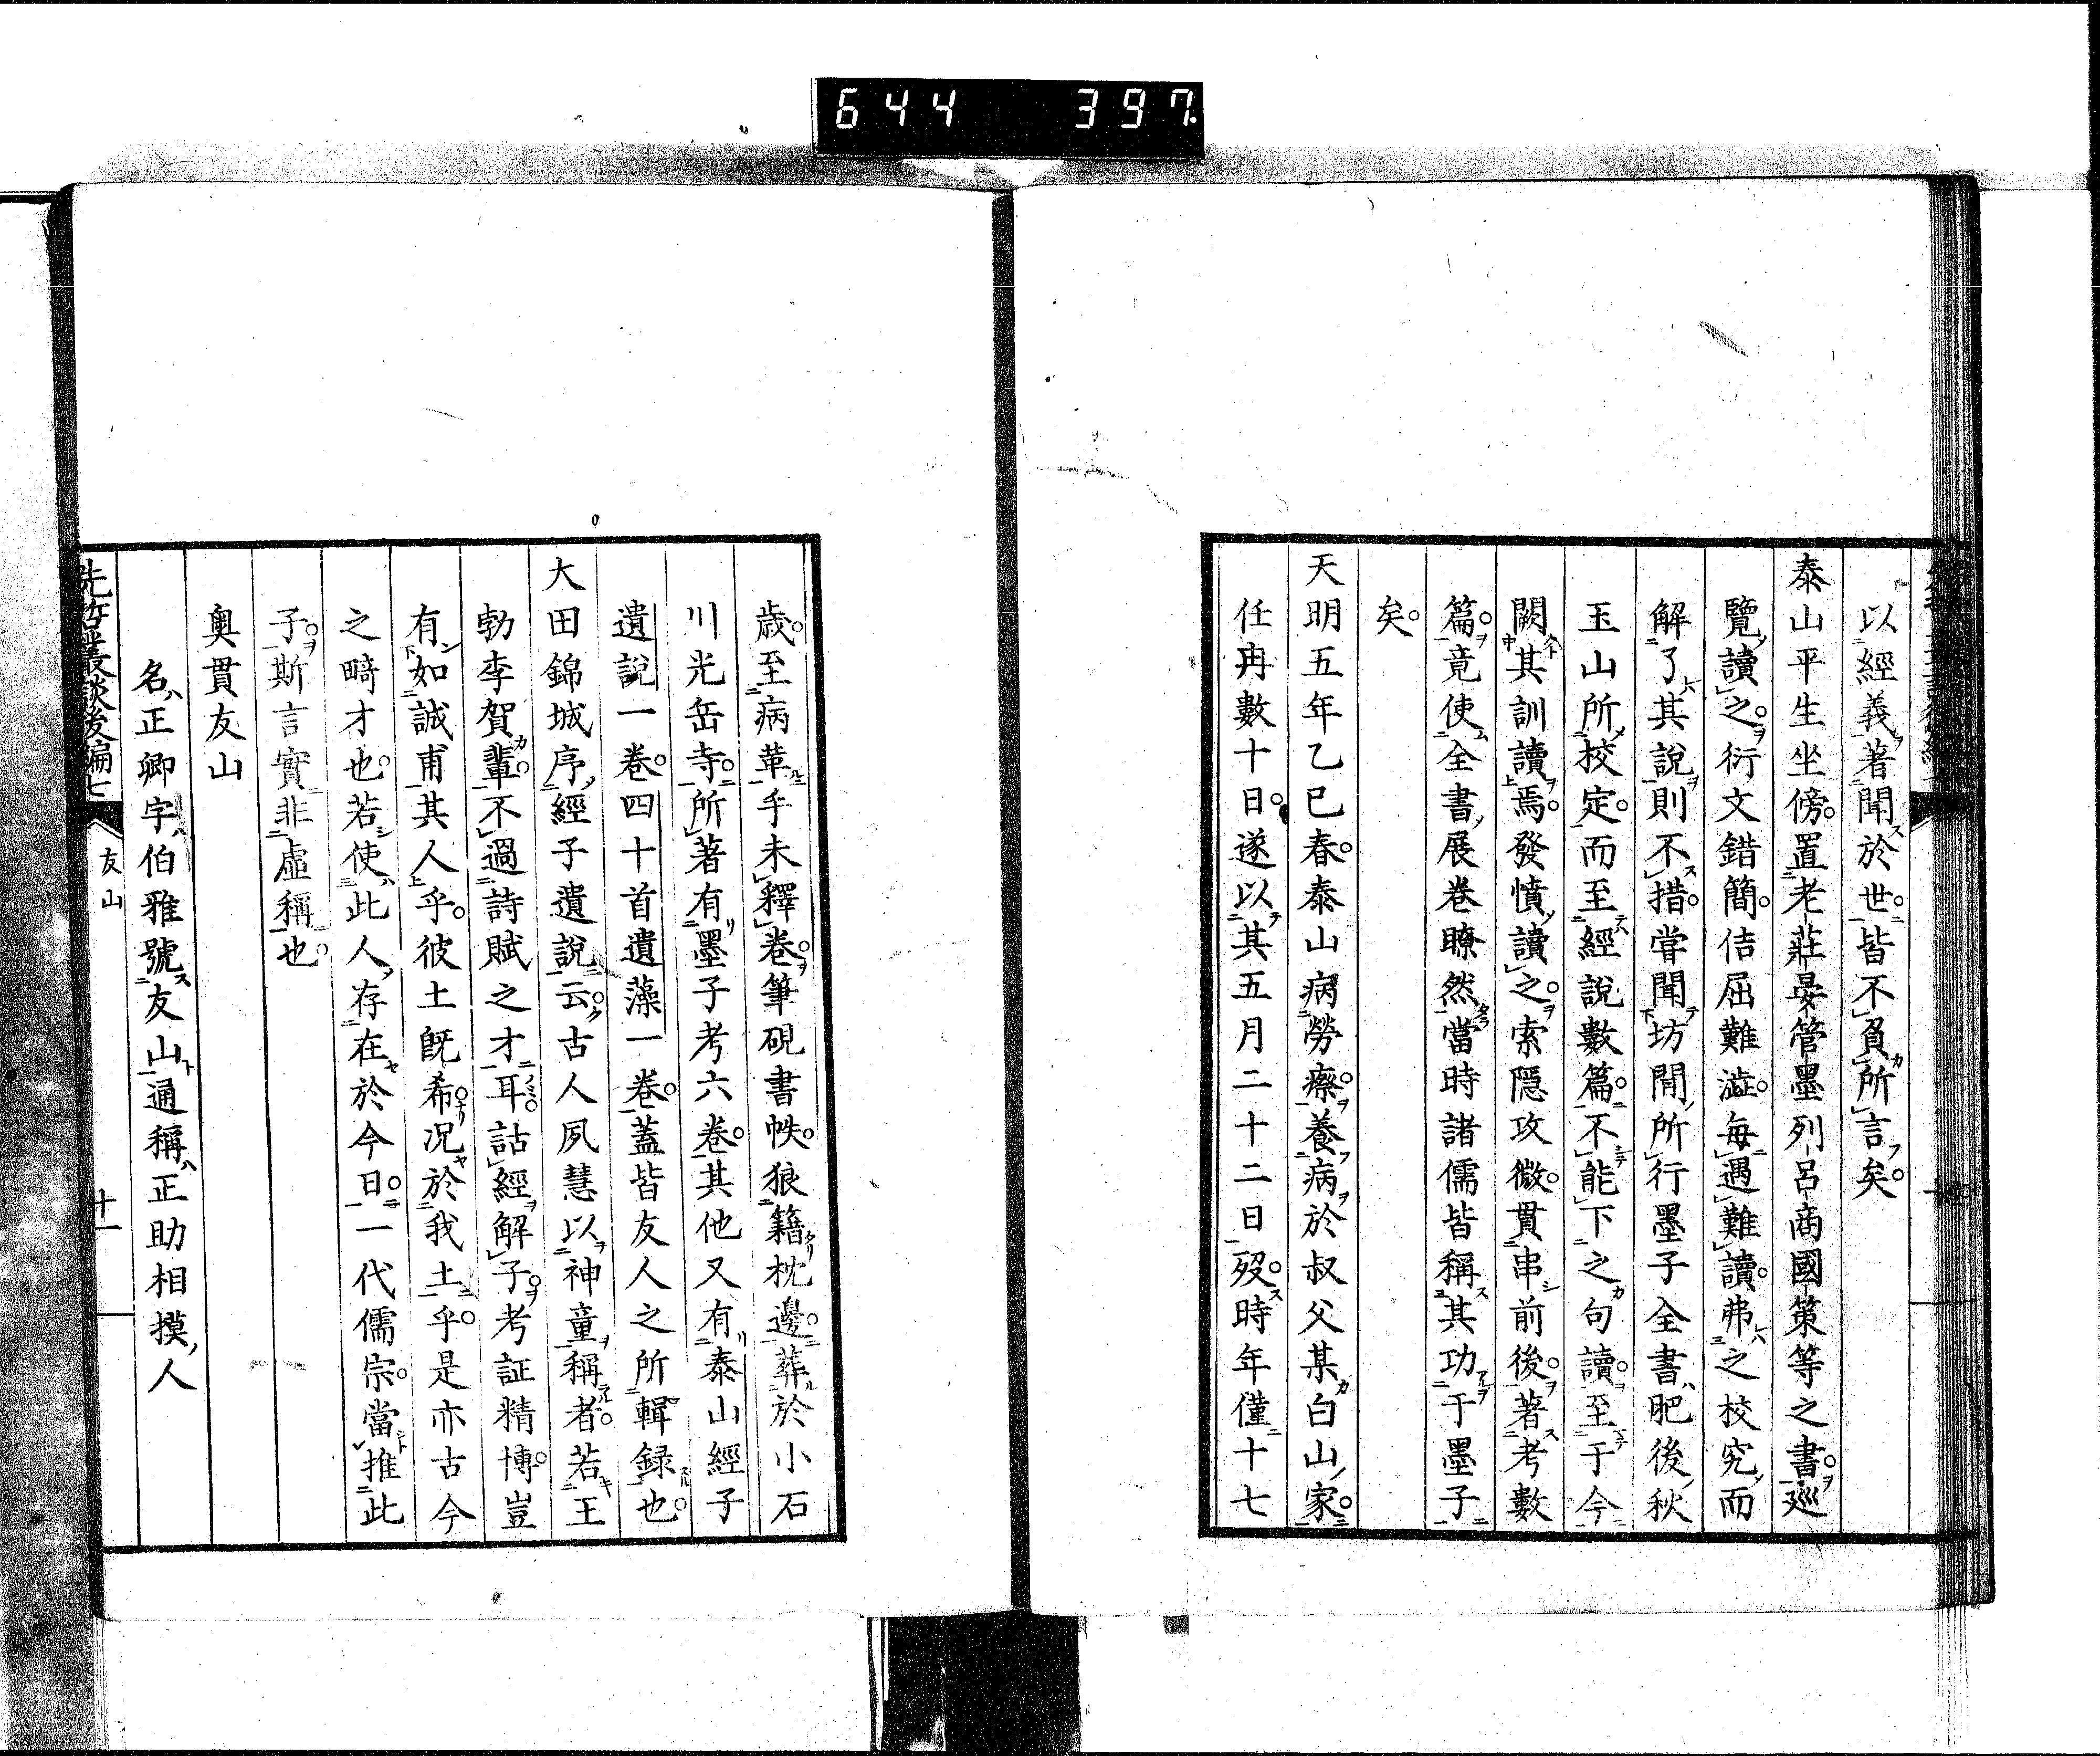 644 397
以經義著聞於世。皆不負所言矣。
泰山平生坐傍。置老莊晏管墨列呂商國策等之書。巡
覽讀之。衍文錯簡。佶屈難澁。每遇難讀。弗之校究而
解了其說則不措。嘗聞坊間所行墨子全書肥後秋
玉山所校定。而至經說數篇。不能下之句讀。至于今
闕其訓讀焉。發憤讀之。索隱攻微。貫串前後。著考數
篇。竟使全書展卷瞭然當時諸儒皆稱其功于墨子
矣。
天明五年乙巳春。泰山病勞瘵。養病於叔父某白山家。
任冉數十日。遂以其五月二十二日歿。時年僅十七
歲。至病革手未釋卷。筆硯書帙。狼籍枕邊。葬於小石
川光岳寺。所著有墨子考六卷。其他又有泰山經子
遺說一卷。四十首遺藻一卷。蓋皆友人之所輯録也。
大田錦城序經子遺說云。古人夙慧以神童稱者。若王
勃李賀輩。不過詩賦之才耳。詁經解子。考証精博。豈
有如誠甫其人乎。彼土既希。况於我土乎。是亦古今
之畸才也。若使此人存在於今日。一代儒宗。當推此
子。斯言實非虛稱也。
奧貫友山
名正卿字伯雅號友山通稱正助相摸人
先哲叢談後編七
友山
十一